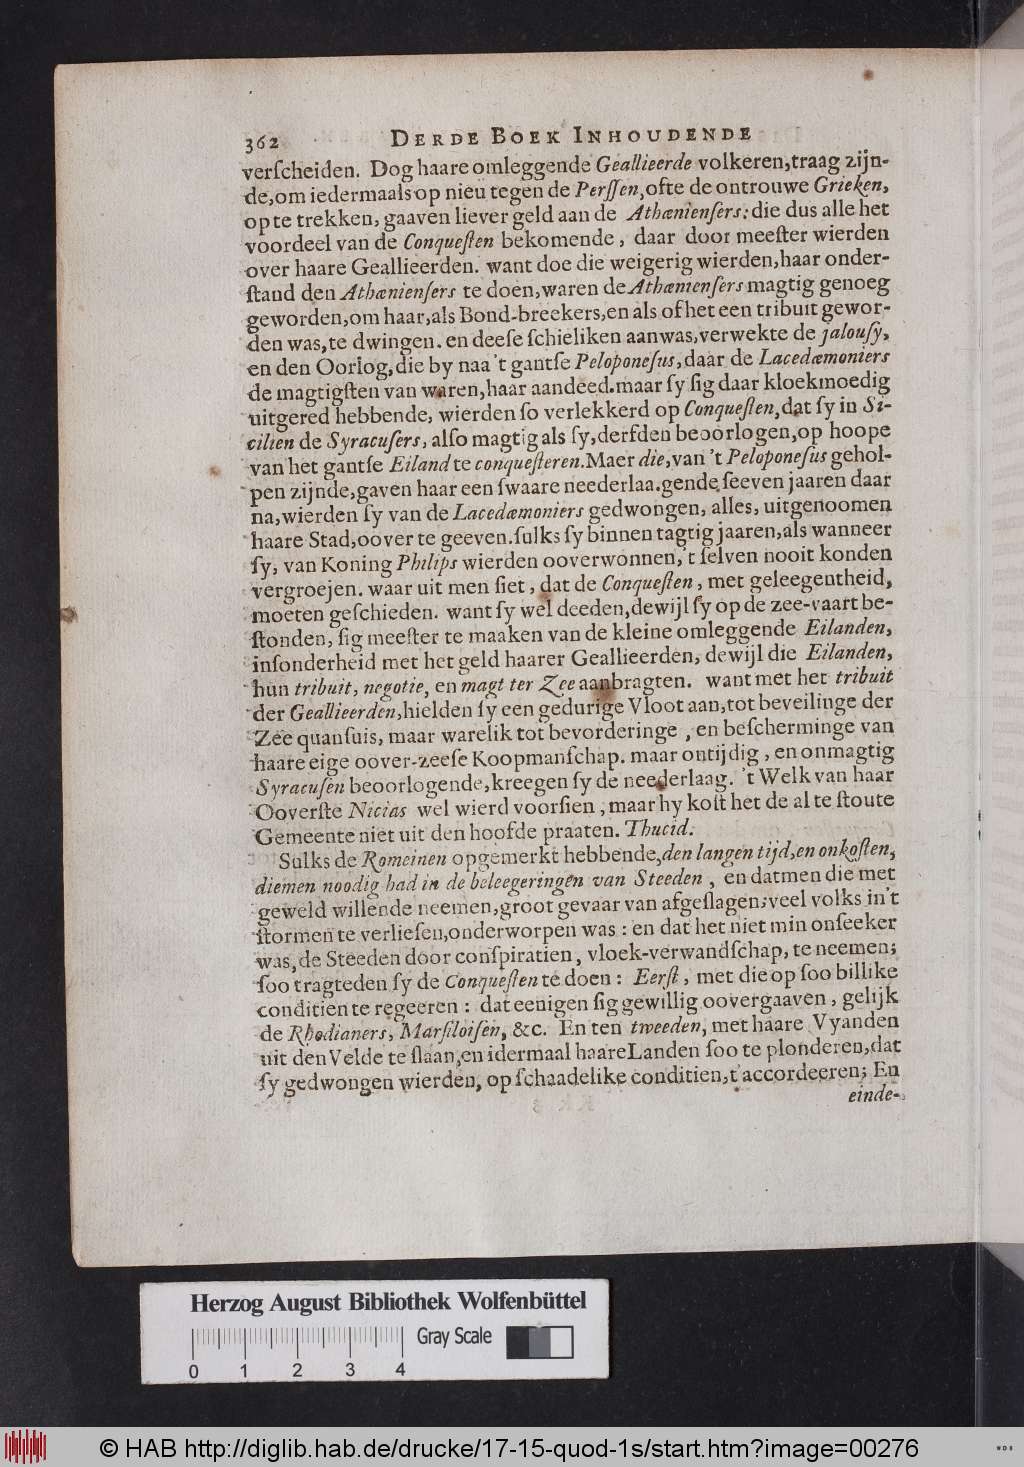 362 DERDE BOEK INHOUDENDE
verſcheiden. Dog haare omleggende Geallieerde volkeren, traag zijn-
de, om iedermaals op nieu tegen de Perſſen, ofte de ontrouwe Grieken,
op te trekken, gaaven liever geld aan de Athænienſers: die dus alle het
voordeel van de Conqueſten bekomende, daar door meeſter wierden
over haare Geallieerden. want doe die weigerig wierden, haar onder-
ſtand den Athænienſers te doen, waren de Athænienſers magtig genoeg
geworden, om haar, als Bond-breekers, en als of het een tribuit gewor-
den was, te dwingen. en deeſe ſchieliken aanwas, verwekte de jalouſy,
en den Oorlog, die by naa 't gantſe Peloponeſus, daar de Lacedæmoniers
de magtigſten van waren, haar aandeed. maar ſy ſig daar kloekmoedig
uitgered hebbende, wierden ſo verlekkerd op Conqueſten, dat ſy in Si-
cilien de Syracuſers, alſo magtig als ſy, derfden beoorlogen, op hoope
van het gantſe Eiland te conqueſteren. Maer die, van 't Peloponeſus gehol-
pen zijnde, gaven haar een ſwaare neederlaa. gende ſeeven jaaren daar
na, wierden ſy van de Lacedæmoniers gedwongen, alles, uitgenoomen
haare Stad, oover te geeven. ſulks ſy binnen tagtig jaaren, als wanneer
ſy, van Koning Philips wierden ooverwonnen, 't ſelven nooit konden
vergroejen. waar uit men ſiet, dat de Conqueſten, met geleegentheid,
moeten geſchieden. want ſy wel deeden, dewijl ſy op de zee-vaart be-
ſtonden, ſig meeſter te maaken van de kleine omleggende Eilanden,
inſonderheid met het geld haarer Geallieerden, dewijl die Eilanden,
hun tribuit, negotie, en magt ter Zee aanbragten. want met het tribuit
der Geallieerden, hielden ſy een gedurige Vloot aan, tot beveilinge der
Zee quanſuis, maar warelik tot bevorderinge, en beſcherminge van
haare eige oover-zeeſe Koopmanſchap. maar ontijdig, en onmagtig
Syracuſen beoorlogende, kreegen ſy de neederlaag. 't Welk van haar
Ooverſte Nicias wel wierd voorſien, maar hy koſt het de al te ſtoute
Gemeente niet uit den hoofde praaten. Thucid.
Sulks de Romeinen opgemerkt hebbende, den langen tijd, en onkoſten,
diemen noodig had in de beleegeringen van Steeden, en datmen die met
geweld willende neemen, groot gevaar van afgeſlagen; veel volks in 't
ſtormen te verlieſen, onderworpen was: en dat het niet min onſeeker
was, de Steeden door conſpiratien, vloek-verwandſchap, te neemen;
ſoo tragteden ſy de Conqueſten te doen: Eerſt, met die op ſoo billike
conditien te regeeren: dat eenigen ſig gewillig oovergaaven, gelijk
de Rhodianers, Marſiloiſen, &c. En ten tweeden, met haare Vyanden
uit den Velde te ſlaan, en idermaal haare Landen ſoo te plonderen, dat
ſy gedwongen wierden, op ſchaadelike conditien, t'accordeeren; En
einde-
Herzog August Bibliothek Wolfenbüttel
0 1 2 3 4 Gray Scale
© HAB http://diglib.hab.de/drucke/17-15-quod-1s/start.htm?image=00276
WDB